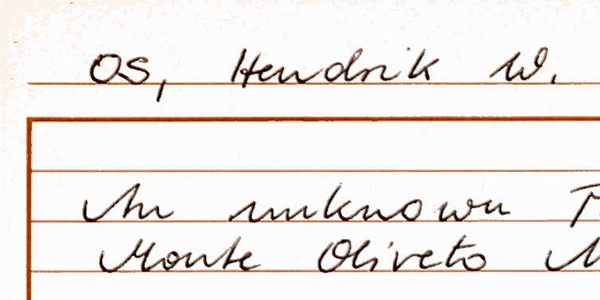 OS, Hendrik W.
An unknown
Monte Oliveto